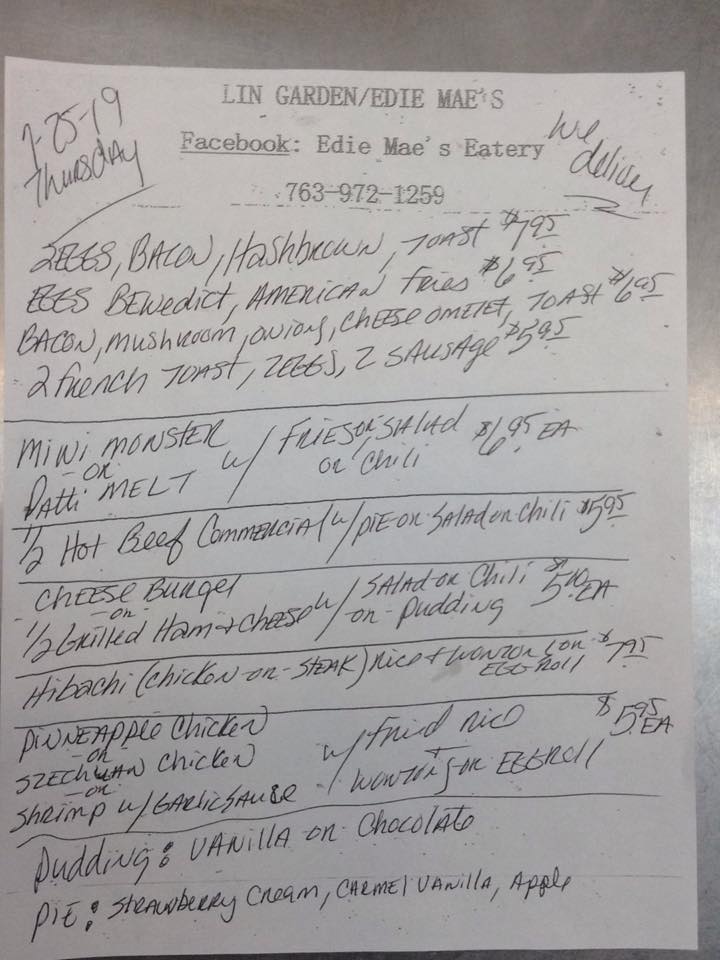 LIN GARDEN/EDIE MAE'S
7-25-19
Thursday
Facebook: Edie Mae's Eatery
We deliver
763-972-1259
2 EGGS, BACON, Hashbrown, TOAST $7.95
EGGS BENedict, AMERICAN Fries $6.95
BACON, Mushroom, onions, CHEESE OMELET, TOAST $6.95
2 French TOAST, 2 EGGS, 2 SAUSAGE $5.95
MINI MONSTER
-or-
Patti MELT w/ FRIES or SALAd or Chili $6.95 EA
1/2 Hot Beef Commercial w/ PIE or SALAD or Chili $5.95
CHEESE BURger
-or-
1/2 Grilled Ham & Cheese w/ SALAD or Chili or Pudding $5.40 EA
Hibachi (Chicken -or- STEAK) Rice + WONTON or EGGROLL $7.95
PINNEAPPLE Chicken
-or-
SZECHUAN Chicken w/ Fried rice + WONTONS or EGGROLL $5.95 EA
-or-
Shrimp w/ GARLIC SAUCE
Pudding: VANILLA or Chocolate
PIE: STRAWBERRY Cream, CARMEL VANILLA, Apple